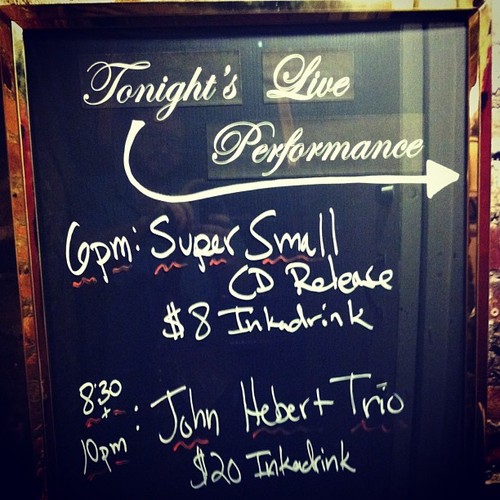 Tonight's Live
Performance
6pm: Super Small
CD Release
$8 Inkadrink
8:30
+
10pm : John Hebert Trio
$20 Inkadrink